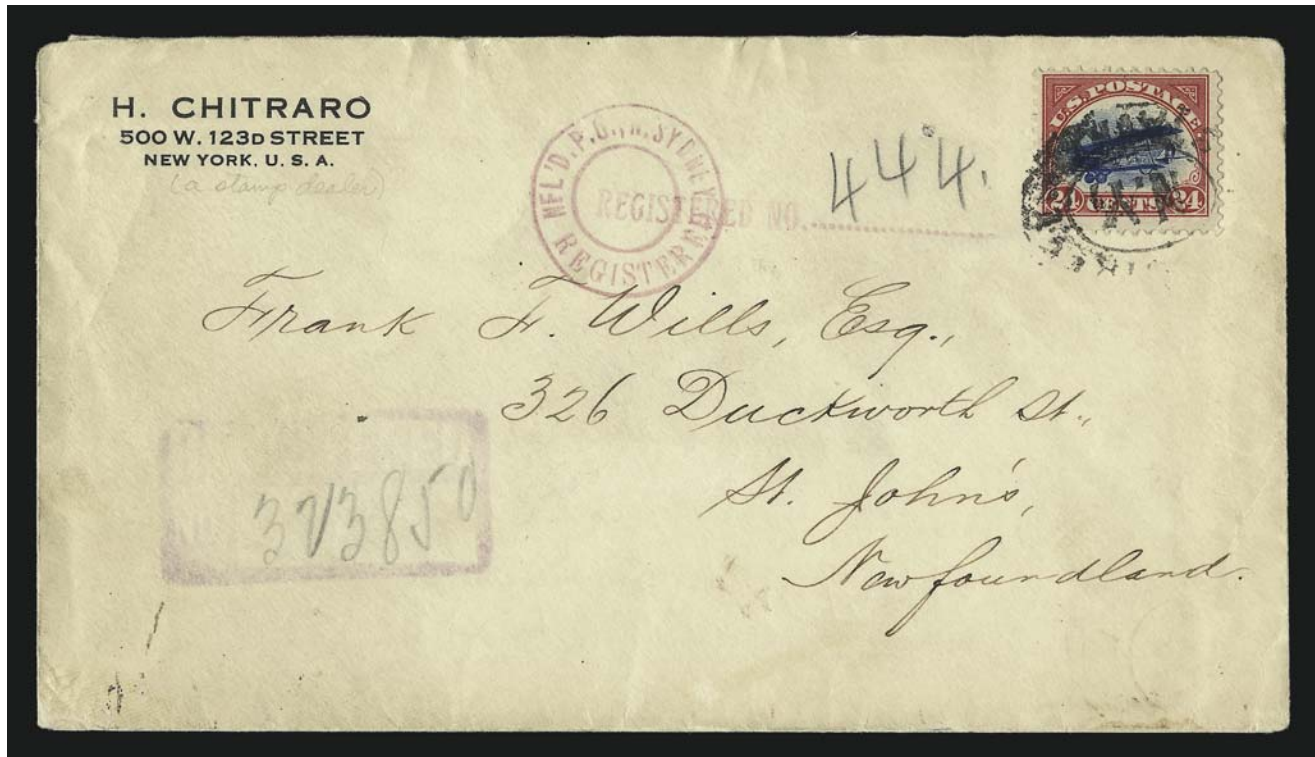 H. CHITRARO
500 W. 123D STREET
NEW YORK, U. S. A.
(a stamp dealer)
NFL'D. P. O., N. SYDNEY
REGISTERED
REGISTERED NO. 444.
U.S. POSTAGE
24 CENTS 24
N.Y.
Frank F. Wills, Esq.,
326 Duckworth St.,
St. John's,
Newfoundland.
323850